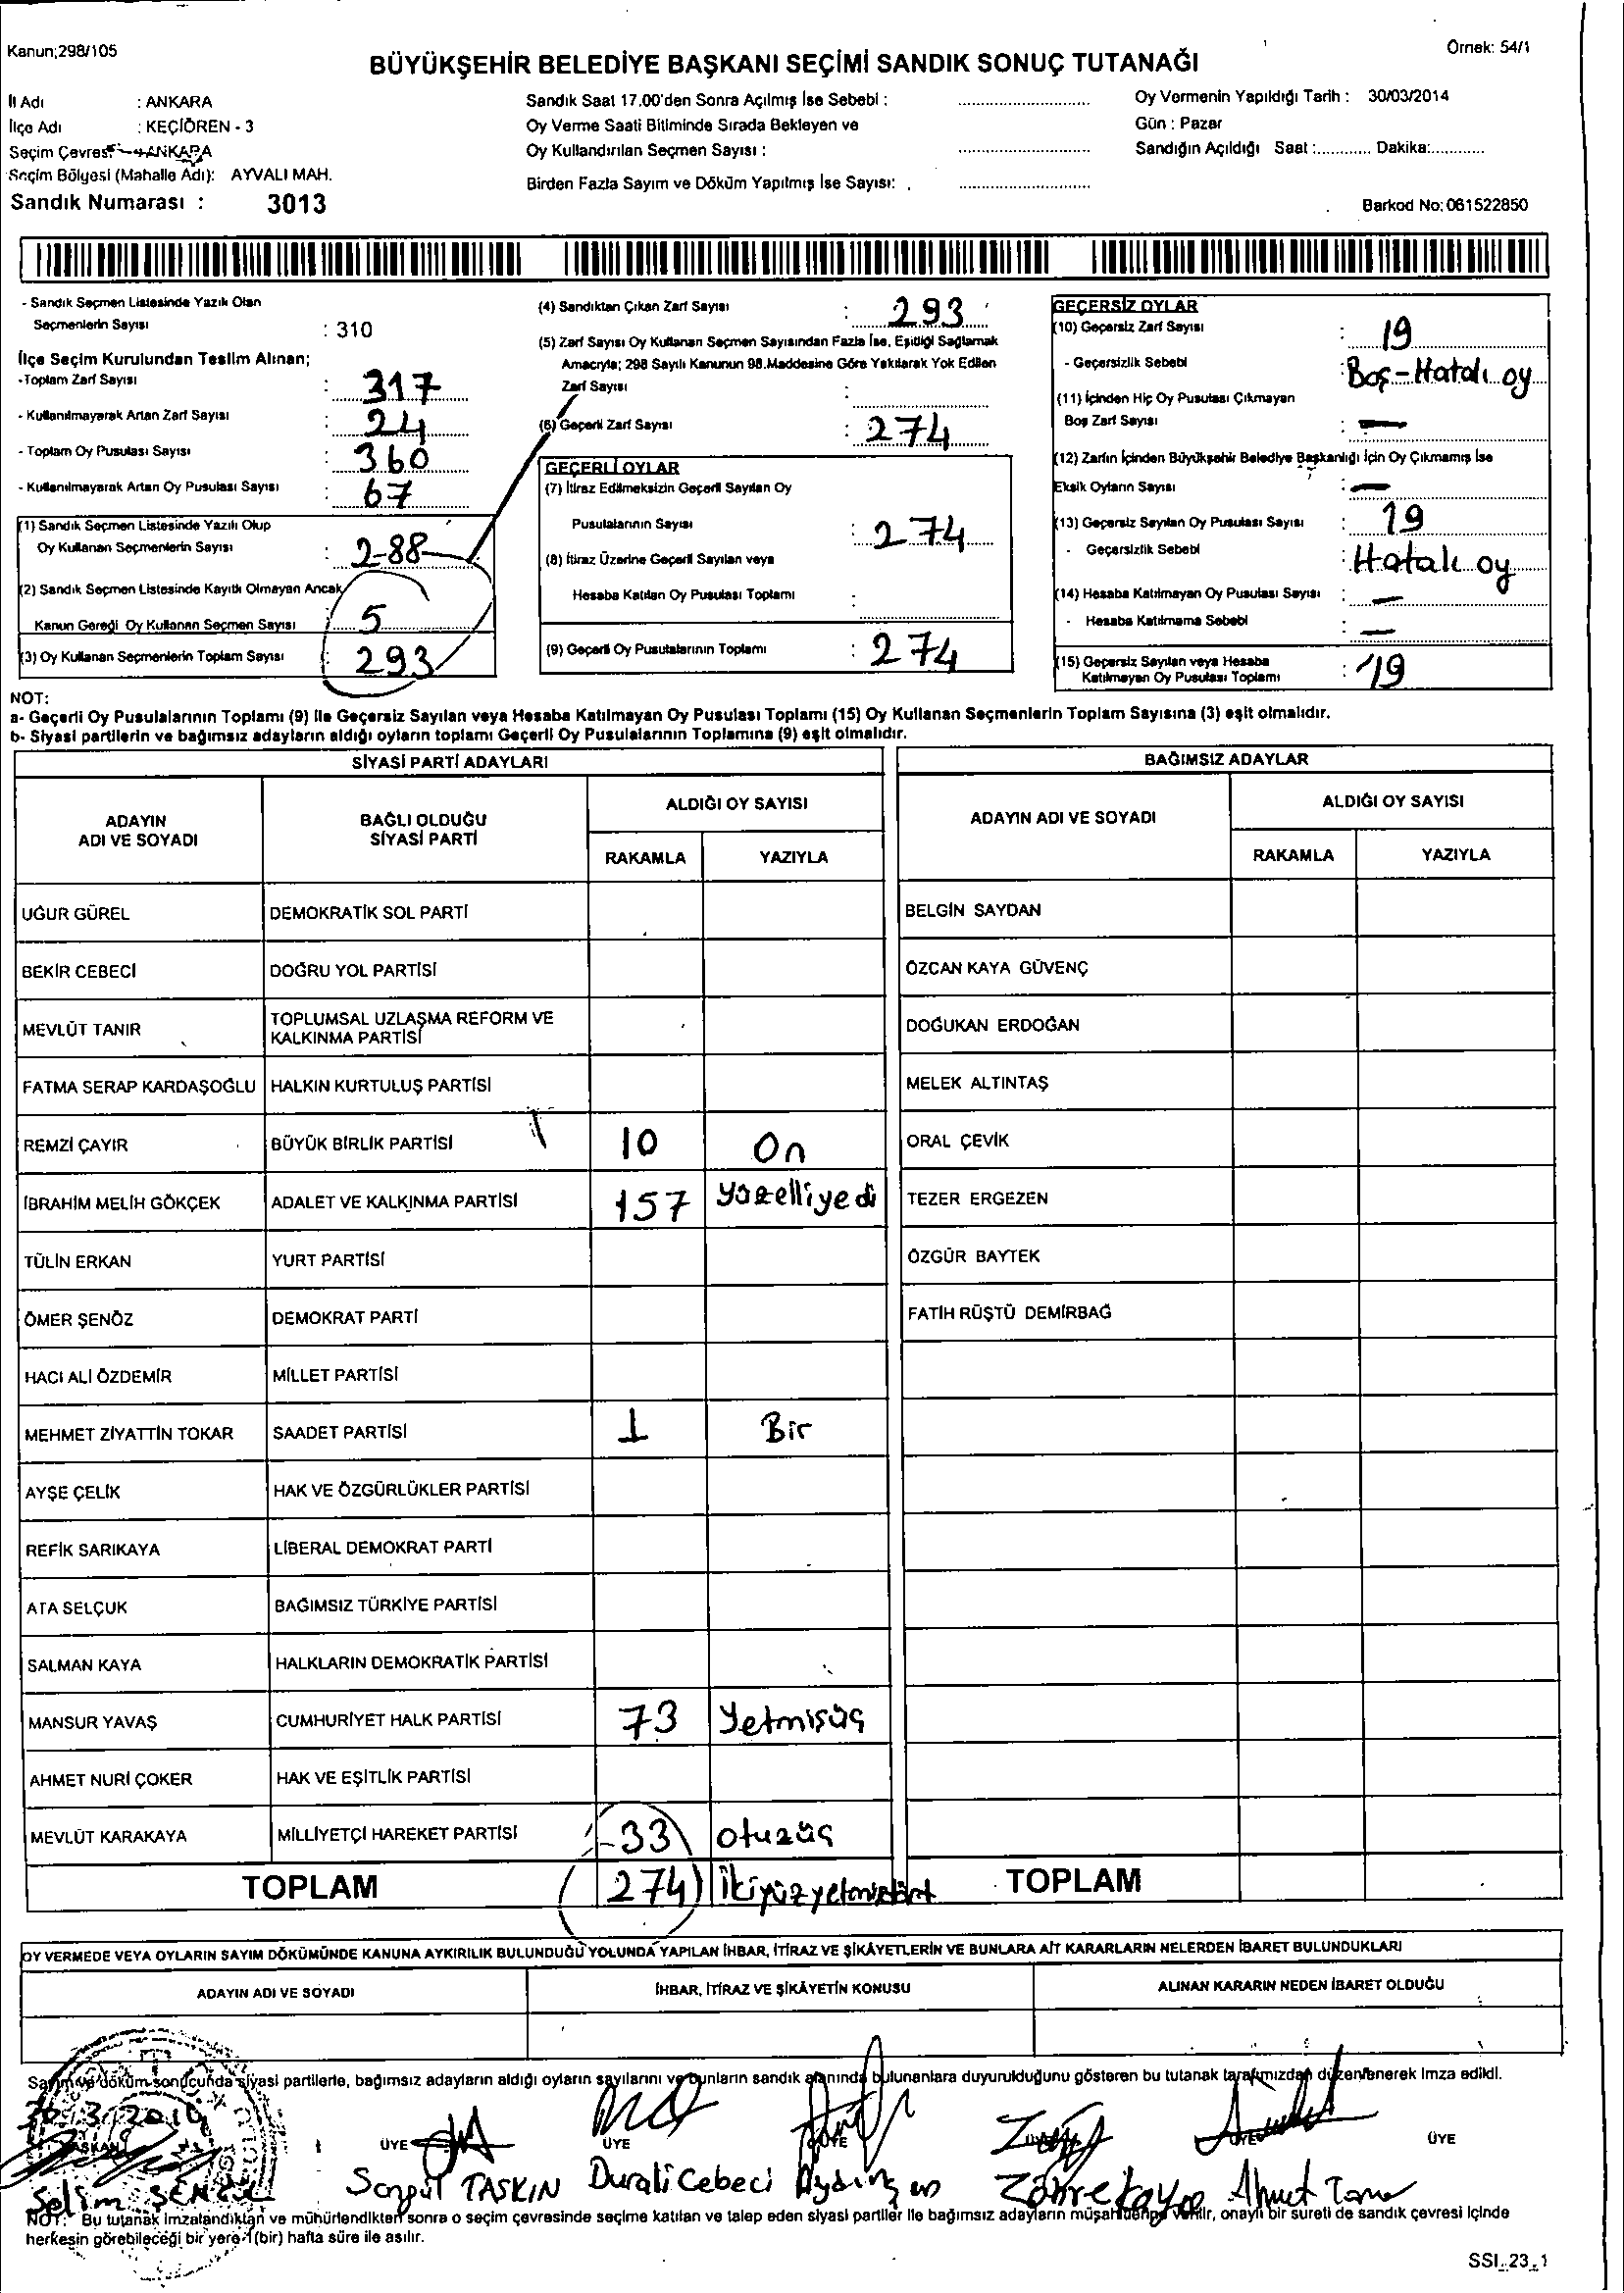 Kanun;298/105
Örnek: 54/1
BÜYÜKŞEHİR BELEDİYE BAŞKANI SEÇİMİ SANDIK SONUÇ TUTANAĞI
İl Adı : ANKARA
İlçe Adı : KEÇİÖREN - 3
Seçim Çevresi ANKARA
Seçim Bölgesi (Mahalle Adı): AYVALI MAH.
Sandık Numarası : 3013
Sandık Saat 17.00'den Sonra Açılmış İse Sebebi :
Oy Verme Saati Bitiminde Sırada Bekleyen ve
Oy Kullandırılan Seçmen Sayısı :
Birden Fazla Sayım ve Döküm Yapılmış İse Sayısı:
Oy Vermenin Yapıldığı Tarih : 30/03/2014
Gün : Pazar
Sandığın Açıldığı Saat :............ Dakika:............
Barkod No: 061522850
- Sandık Seçmen Listesinde Yazılı Olan
Seçmenlerin Sayısı : 310
İlçe Seçim Kurulundan Teslim Alınan;
-Toplam Zarf Sayısı : 317
- Kullanılmayarak Artan Zarf Sayısı : 24
- Toplam Oy Pusulası Sayısı : 360
- Kullanılmayarak Artan Oy Pusulası Sayısı : 67
(1) Sandık Seçmen Listesinde Yazılı Olup
Oy Kullanan Seçmenlerin Sayısı : 288
(2) Sandık Seçmen Listesinde Kayıtlı Olmayan Ancak
Kanun Gereği Oy Kullanan Seçmen Sayısı : 5
(3) Oy Kullanan Seçmenlerin Toplam Sayısı : 293
(4) Sandıktan Çıkan Zarf Sayısı : 293
(5) Zarf Sayısı Oy Kullanan Seçmen Sayısından Fazla İse, Eşitliği Sağlamak
Amacıyla; 298 Sayılı Kanunun 98.Maddesine Göre Yakılarak Yok Edilen
Zarf Sayısı :
(6) Geçerli Zarf Sayısı : 274
GEÇERLİ OYLAR
(7) İtiraz Edilmeksizin Geçerli Sayılan Oy
Pusulalarının Sayısı : 274
(8) İtiraz Üzerine Geçerli Sayılan veya
Hesaba Katılan Oy Pusulası Toplamı :
(9) Geçerli Oy Pusulalarının Toplamı : 274
GEÇERSİZ OYLAR
(10) Geçersiz Zarf Sayısı : 19
- Geçersizlik Sebebi : Boş-Hatalı oy
(11) İçinden Hiç Oy Pusulası Çıkmayan
Boş Zarf Sayısı : —
(12) Zarfın İçinden Büyükşehir Belediye Başkanlığı İçin Oy Çıkmamış İse
Eksik Oyların Sayısı : —
(13) Geçersiz Sayılan Oy Pusulası Sayısı : 19
- Geçersizlik Sebebi : Hatalı oy
(14) Hesaba Katılmayan Oy Pusulası Sayısı : —
- Hesaba Katılmama Sebebi : —
(15) Geçersiz Sayılan veya Hesaba
Katılmayan Oy Pusulası Toplamı : 19
NOT:
a- Geçerli Oy Pusulalarının Toplamı (9) ile Geçersiz Sayılan veya Hesaba Katılmayan Oy Pusulası Toplamı (15) Oy Kullanan Seçmenlerin Toplam Sayısına (3) eşit olmalıdır.
b- Siyasi partilerin ve bağımsız adayların aldığı oyların toplamı Geçerli Oy Pusulalarının Toplamına (9) eşit olmalıdır.
SİYASİ PARTİ ADAYLARI
BAĞIMSIZ ADAYLAR
ADAYIN ADI VE SOYADI
BAĞLI OLDUĞU SİYASİ PARTİ
ALDIĞI OY SAYISI
RAKAMLA YAZIYLA
ADAYIN ADI VE SOYADI
ALDIĞI OY SAYISI
RAKAMLA YAZIYLA
UĞUR GÜREL DEMOKRATİK SOL PARTİ BELGİN SAYDAN
BEKİR CEBECİ DOĞRU YOL PARTİSİ ÖZCAN KAYA GÜVENÇ
MEVLÜT TANIR TOPLUMSAL UZLAŞMA REFORM VE KALKINMA PARTİSİ DOĞUKAN ERDOĞAN
FATMA SERAP KARDAŞOĞLU HALKIN KURTULUŞ PARTİSİ MELEK ALTINTAŞ
REMZİ ÇAYIR BÜYÜK BİRLİK PARTİSİ 10 On ORAL ÇEVİK
İBRAHİM MELİH GÖKÇEK ADALET VE KALKINMA PARTİSİ 157 yüzelliyedi TEZER ERGEZEN
TÜLİN ERKAN YURT PARTİSİ ÖZGÜR BAYTEK
ÖMER ŞENÖZ DEMOKRAT PARTİ FATİH RÜŞTÜ DEMİRBAĞ
HACI ALİ ÖZDEMİR MİLLET PARTİSİ
MEHMET ZİYATTİN TOKAR SAADET PARTİSİ 1 Bir
AYŞE ÇELİK HAK VE ÖZGÜRLÜKLER PARTİSİ
REFİK SARIKAYA LİBERAL DEMOKRAT PARTİ
ATA SELÇUK BAĞIMSIZ TÜRKİYE PARTİSİ
SALMAN KAYA HALKLARIN DEMOKRATİK PARTİSİ
MANSUR YAVAŞ CUMHURİYET HALK PARTİSİ 73 Yetmişüç
AHMET NURİ ÇOKER HAK VE EŞİTLİK PARTİSİ
MEVLÜT KARAKAYA MİLLİYETÇİ HAREKET PARTİSİ 33 otuzüç
TOPLAM 274 İkiyüzyetmişdört TOPLAM
OY VERMEDE VEYA OYLARIN SAYIM DÖKÜMÜNDE KANUNA AYKIRILIK BULUNDUĞU YOLUNDA YAPILAN İHBAR, İTİRAZ VE ŞİKÂYETLERİN VE BUNLARA AİT KARARLARIN NELERDEN İBARET BULUNDUKLARI
ADAYIN ADI VE SOYADI İHBAR, İTİRAZ VE ŞİKÂYETİN KONUSU ALINAN KARARIN NEDEN İBARET OLDUĞU
Sayım ve döküm sonucunda siyasi partilerle, bağımsız adayların aldığı oyların sayılarını ve bunların sandık alanında bulunanlara duyurulduğunu gösteren bu tutanak tarafımızdan düzenlenerek imza edildi.
ÜYE ÜYE ÜYE ÜYE ÜYE
Selim Songül TAŞKIN Durali Cebeci Zöhre Ahmet
NOT: Bu tutanak imzalandıktan ve mühürlendikten sonra o seçim çevresinde seçime katılan ve talep eden siyasi partiler ile bağımsız adayların müşahitlerine verilir, onaylı bir sureti de sandık çevresi içinde
herkesin görebileceği bir yere 1(bir) hafta süre ile asılır.
SSI_23_1